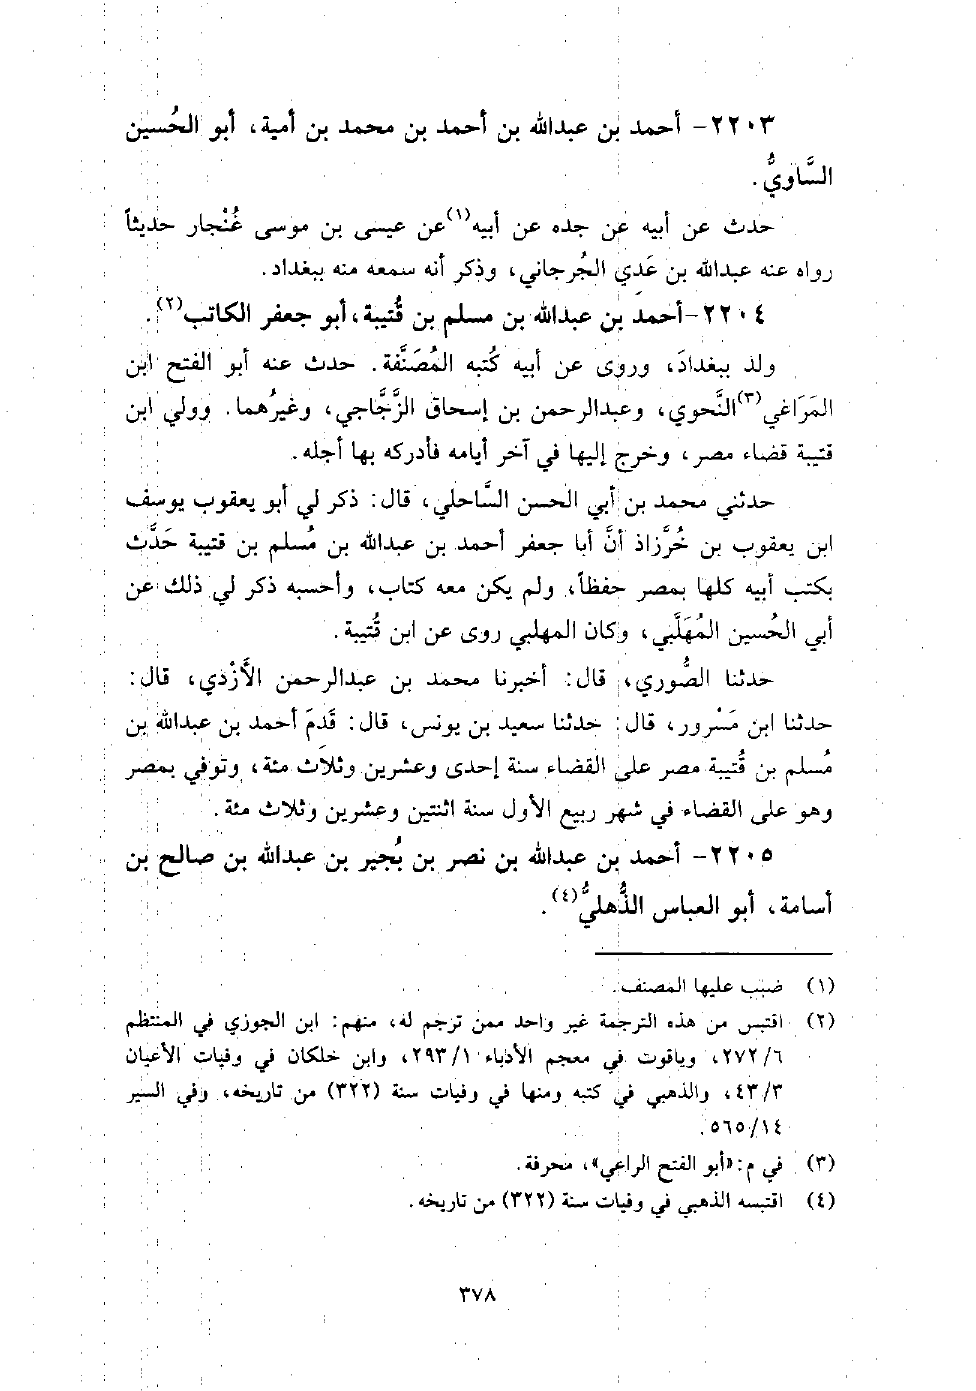 ٢٢٠٣- أحمد بن عبدالله بن أحمد بن محمد بن أمية، أبو الحُسين
السَّاويُّ.
حدث عن أبيه عن جده عن أبيه(١) عن عيسى بن موسى غُنْجار حديثاً
رواه عنه عبدالله بن عَدي الجُرجاني، وذكر أنه سمعه منه ببغداد.
٢٢٠٤- أحمد بن عبدالله بن مسلم بن قُتيبة، أبو جعفر الكاتب(٢).
ولد ببغدادَ، وروى عن أبيه كُتبه المُصَنَّفة. حدث عنه أبو الفتح ابن
المَرَاغي(٣) النَّحوي، وعبدالرحمن بن إسحاق الزَّجَّاجي، وغيرُهما. وولي ابن
قتيبة قضاء مصر، وخرج إليها في آخر أيامه فأدركه بها أجله.
حدثني محمد بن أبي الحسن السَّاحلي، قال: ذكر لي أبو يعقوب يوسف
ابن يعقوب بن خُرَّزاذ أنَّ أبا جعفر أحمد بن عبدالله بن مُسلم بن قتيبة حَدَّث
بكتب أبيه كلها بمصر حفظاً، ولم يكن معه كتاب، وأحسبه ذكر لي ذلك عن
أبي الحُسين المُهَلَّبي، وكان المهلبي روى عن ابن قُتيبة.
حدثنا الصُّوري، قال: أخبرنا محمد بن عبدالرحمن الأَزْدي، قال:
حدثنا ابن مَسْرور، قال: حدثنا سعيد بن يونس، قال: قَدِمَ أحمد بن عبدالله بن
مُسلم بن قُتيبة مصر على القضاء سنة إحدى وعشرين وثلاث مئة، وتوفي بمصر
وهو على القضاء في شهر ربيع الأول سنة اثنتين وعشرين وثلاث مئة.
٢٢٠٥- أحمد بن عبدالله بن نصر بن بُجير بن عبدالله بن صالح بن
أسامة، أبو العباس الذُّهليُّ(٤).
(١) ضبب عليها المصنف.
(٢) اقتبس من هذه الترجمة غير واحد ممن ترجم له، منهم: ابن الجوزي في المنتظم
٢٧٢/٦، وياقوت في معجم الأدباء ٢٩٣/١، وابن خلكان في وفيات الأعيان
٤٣/٣، والذهبي في كتبه ومنها في وفيات سنة (٣٢٢) من تاريخه، وفي السير
٥٦٥/١٤.
(٣) في م: «أبو الفتح الراعي»، محرفة.
(٤) اقتبسه الذهبي في وفيات سنة (٣٢٢) من تاريخه.
٣٧٨